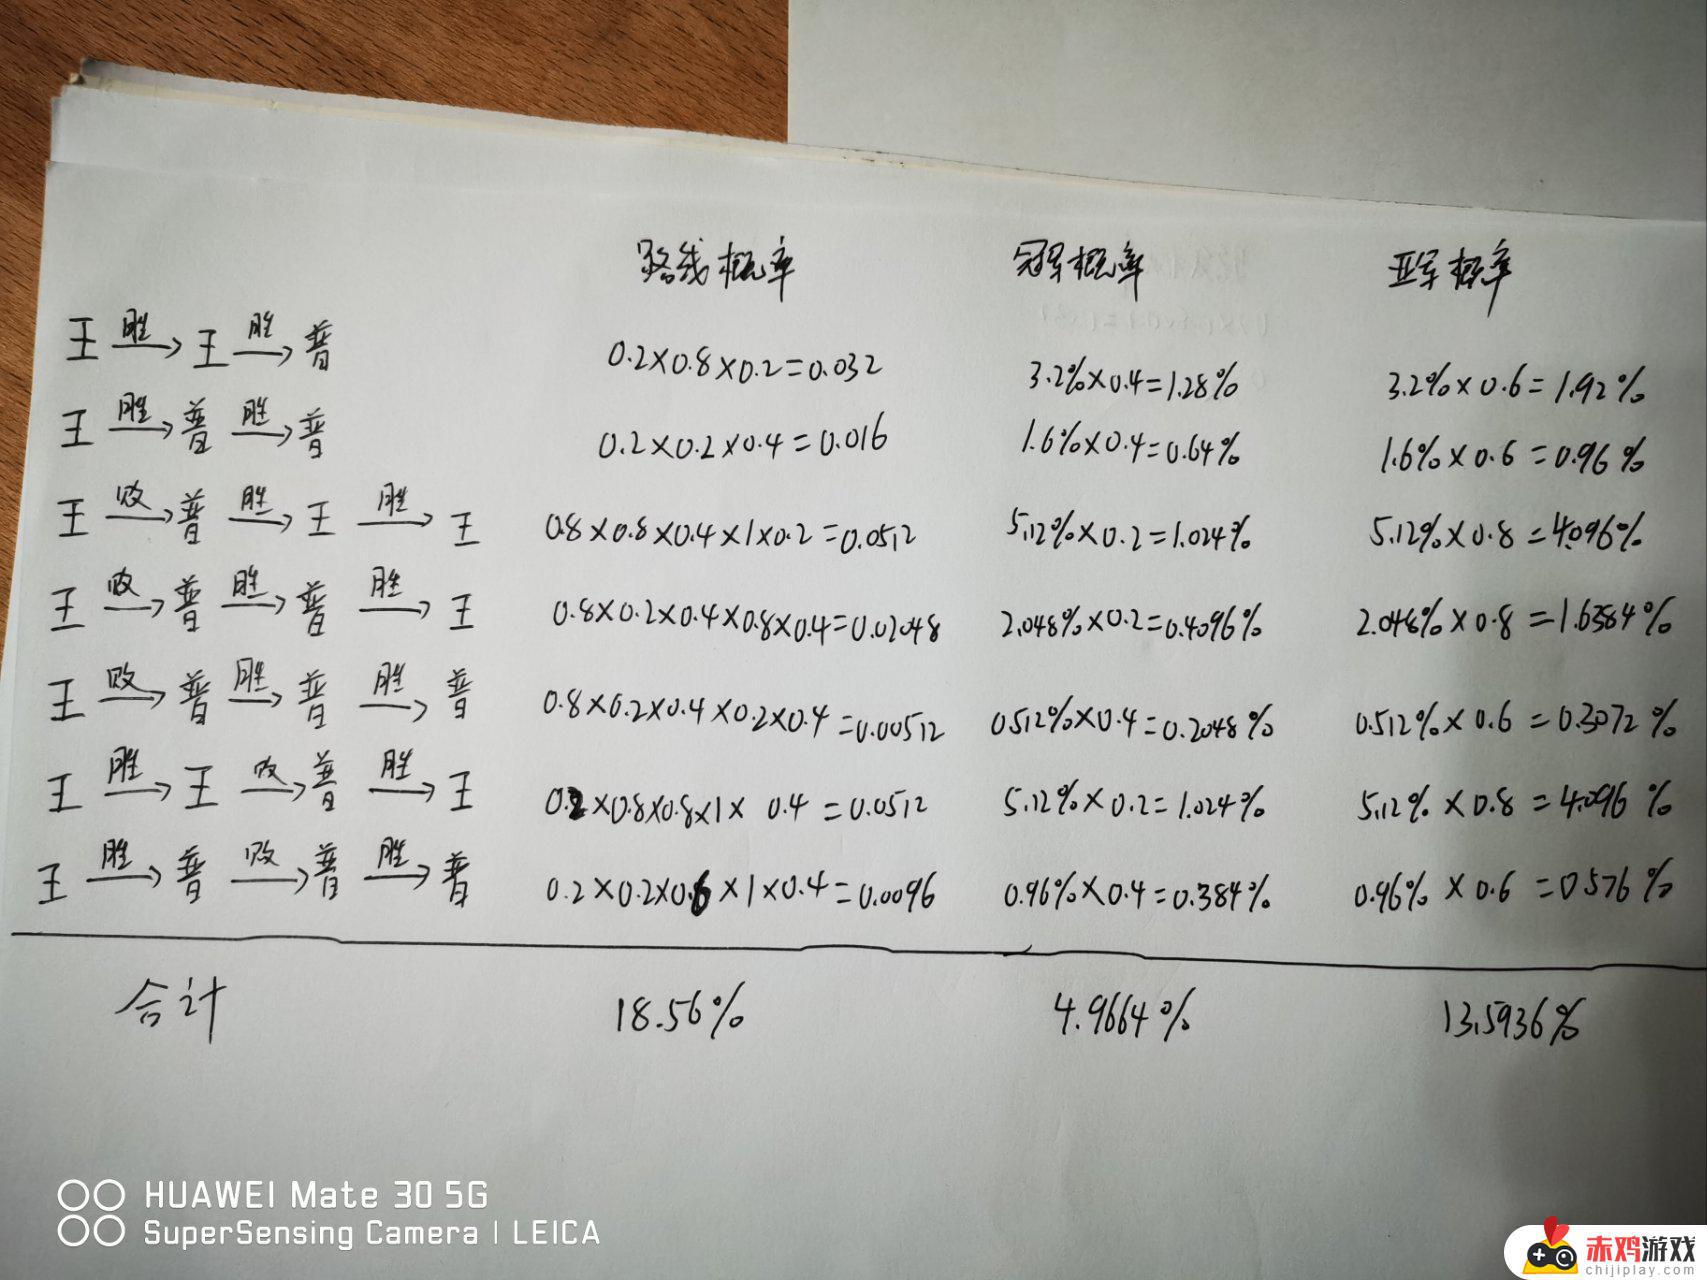 路线概率 冠军概率 亚军概率
王 胜→ 王 胜→ 普 0.2×0.8×0.2=0.032 3.2%×0.4=1.28% 3.2%×0.6=1.92%
王 胜→ 普 胜→ 普 0.2×0.2×0.4=0.016 1.6%×0.4=0.64% 1.6%×0.6=0.96%
王 败→ 普 胜→ 王 胜→ 王 0.8×0.8×0.4×1×0.2=0.0512 5.12%×0.2=1.024% 5.12%×0.8=4.096%
王 败→ 普 胜→ 普 胜→ 王 0.8×0.2×0.4×0.8×0.4=0.02048 2.048%×0.2=0.4096% 2.048%×0.8=1.6384%
王 败→ 普 胜→ 普 胜→ 普 0.8×0.2×0.4×0.2×0.4=0.00512 0.512%×0.4=0.2048% 0.512%×0.6=0.3072%
王 胜→ 王 败→ 普 胜→ 王 0.2×0.8×0.8×1×0.4=0.0512 5.12%×0.2=1.024% 5.12%×0.8=4.096%
王 胜→ 普 败→ 普 胜→ 普 0.2×0.2×0.6×1×0.4=0.0096 0.96%×0.4=0.384% 0.96%×0.6=0.576%
合计 18.56% 4.9664% 13.5936%
HUAWEI Mate 30 5G
SuperSensing Camera | LEICA
赤鸡游戏
chijiplay.com